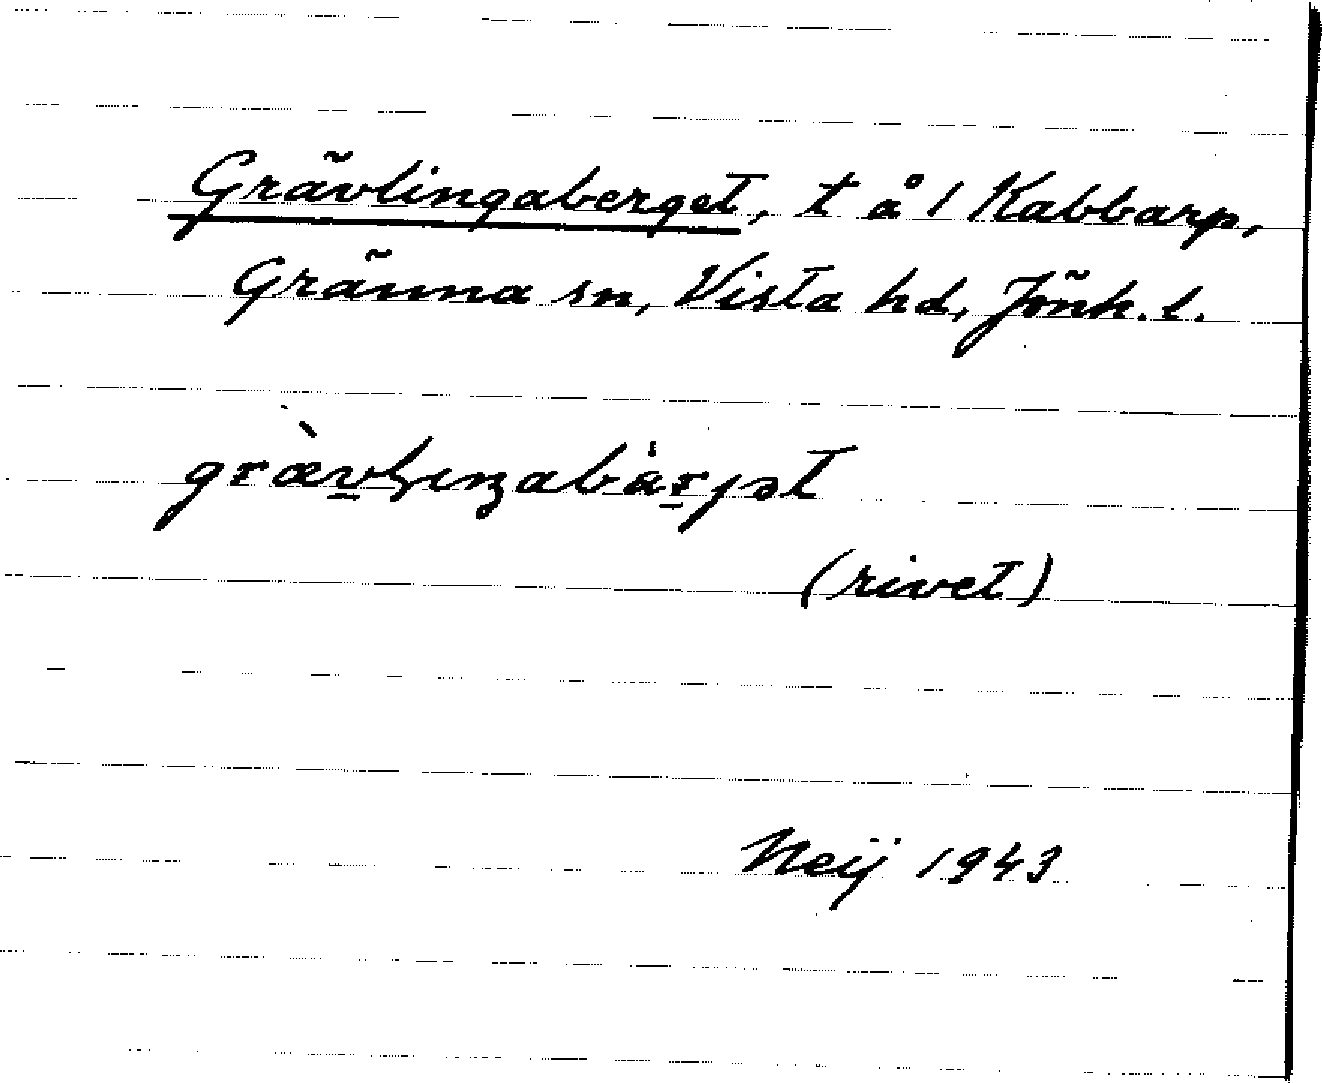 Grävlingaberget, t å 1 Kabbarp,
Gränna sn, Vista hd, Jönk. l.
(rivet)
Neij 1943